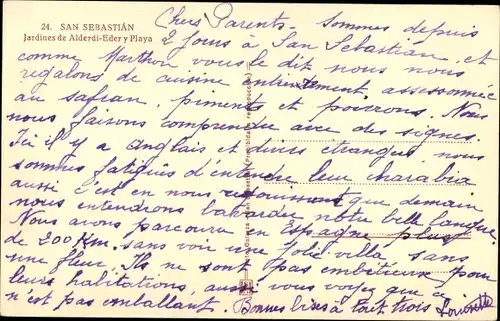 24. SAN SEBASTIÁN
Jardines de Alderdi-Eder y Playa
Chers Parents - sommes depuis
2 jours à San Sebastián, et
comme Marthon vous le dit nous nous
régalons de cuisine entièrement assaisonnée
au safran, piments et poivrons. Nous
nous faisons comprendre avec des signes.
Ici il y a Anglais et divers étrangers, nous
sommes fatigués d'entendre leur charabia
aussi c'est en nous réjouissant que demain
nous entendrons bavarder notre belle langue
Nous avons parcouru en Espagne plus
de 200 Km. sans voir une jolie villa, sans
une fleur. Ils ne sont pas ambitieux pour
leurs habitations, aussi vous voyez que ce
n'est pas emballant. Bonnes bises à tout trois